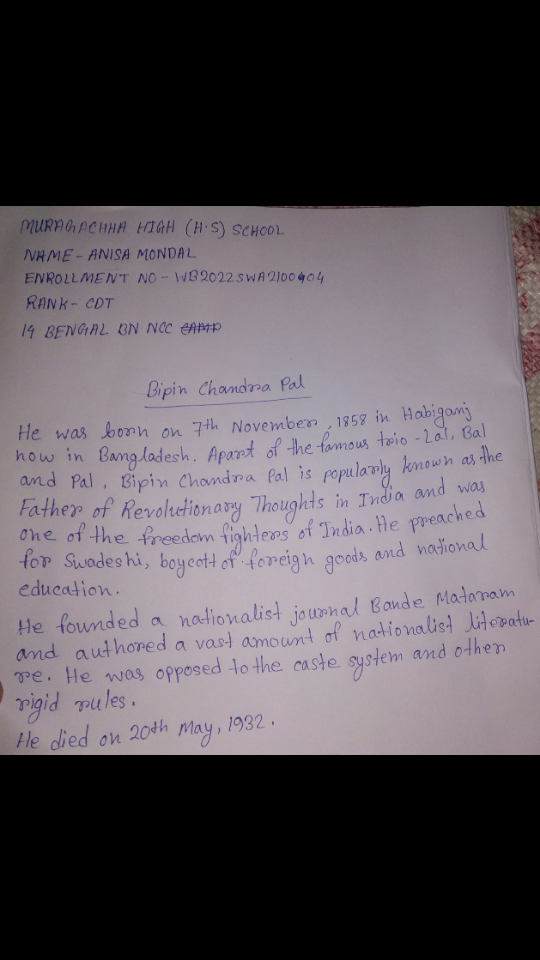 MURAGACHHA HIGH (H.S) SCHOOL
NAME - ANISA MONDAL
ENROLLMENT NO - WB2022SWA2100404
RANK - CDT
19 BENGAL BN NCC CAMP
Bipin Chandra Pal
He was born on 7th November, 1858 in Habiganj
now in Bangladesh. Apart of the famous trio - Lal, Bal
and Pal, Bipin Chandra Pal is popularly known as the
Father of Revolutionary Thoughts in India and was
one of the freedom fighters of India. He preached
for Swadeshi, boycott of foreign goods and national
education.
He founded a nationalist journal Bande Mataram
and authored a vast amount of nationalist literatu-
re. He was opposed to the caste system and other
rigid rules.
He died on 20th May, 1932.